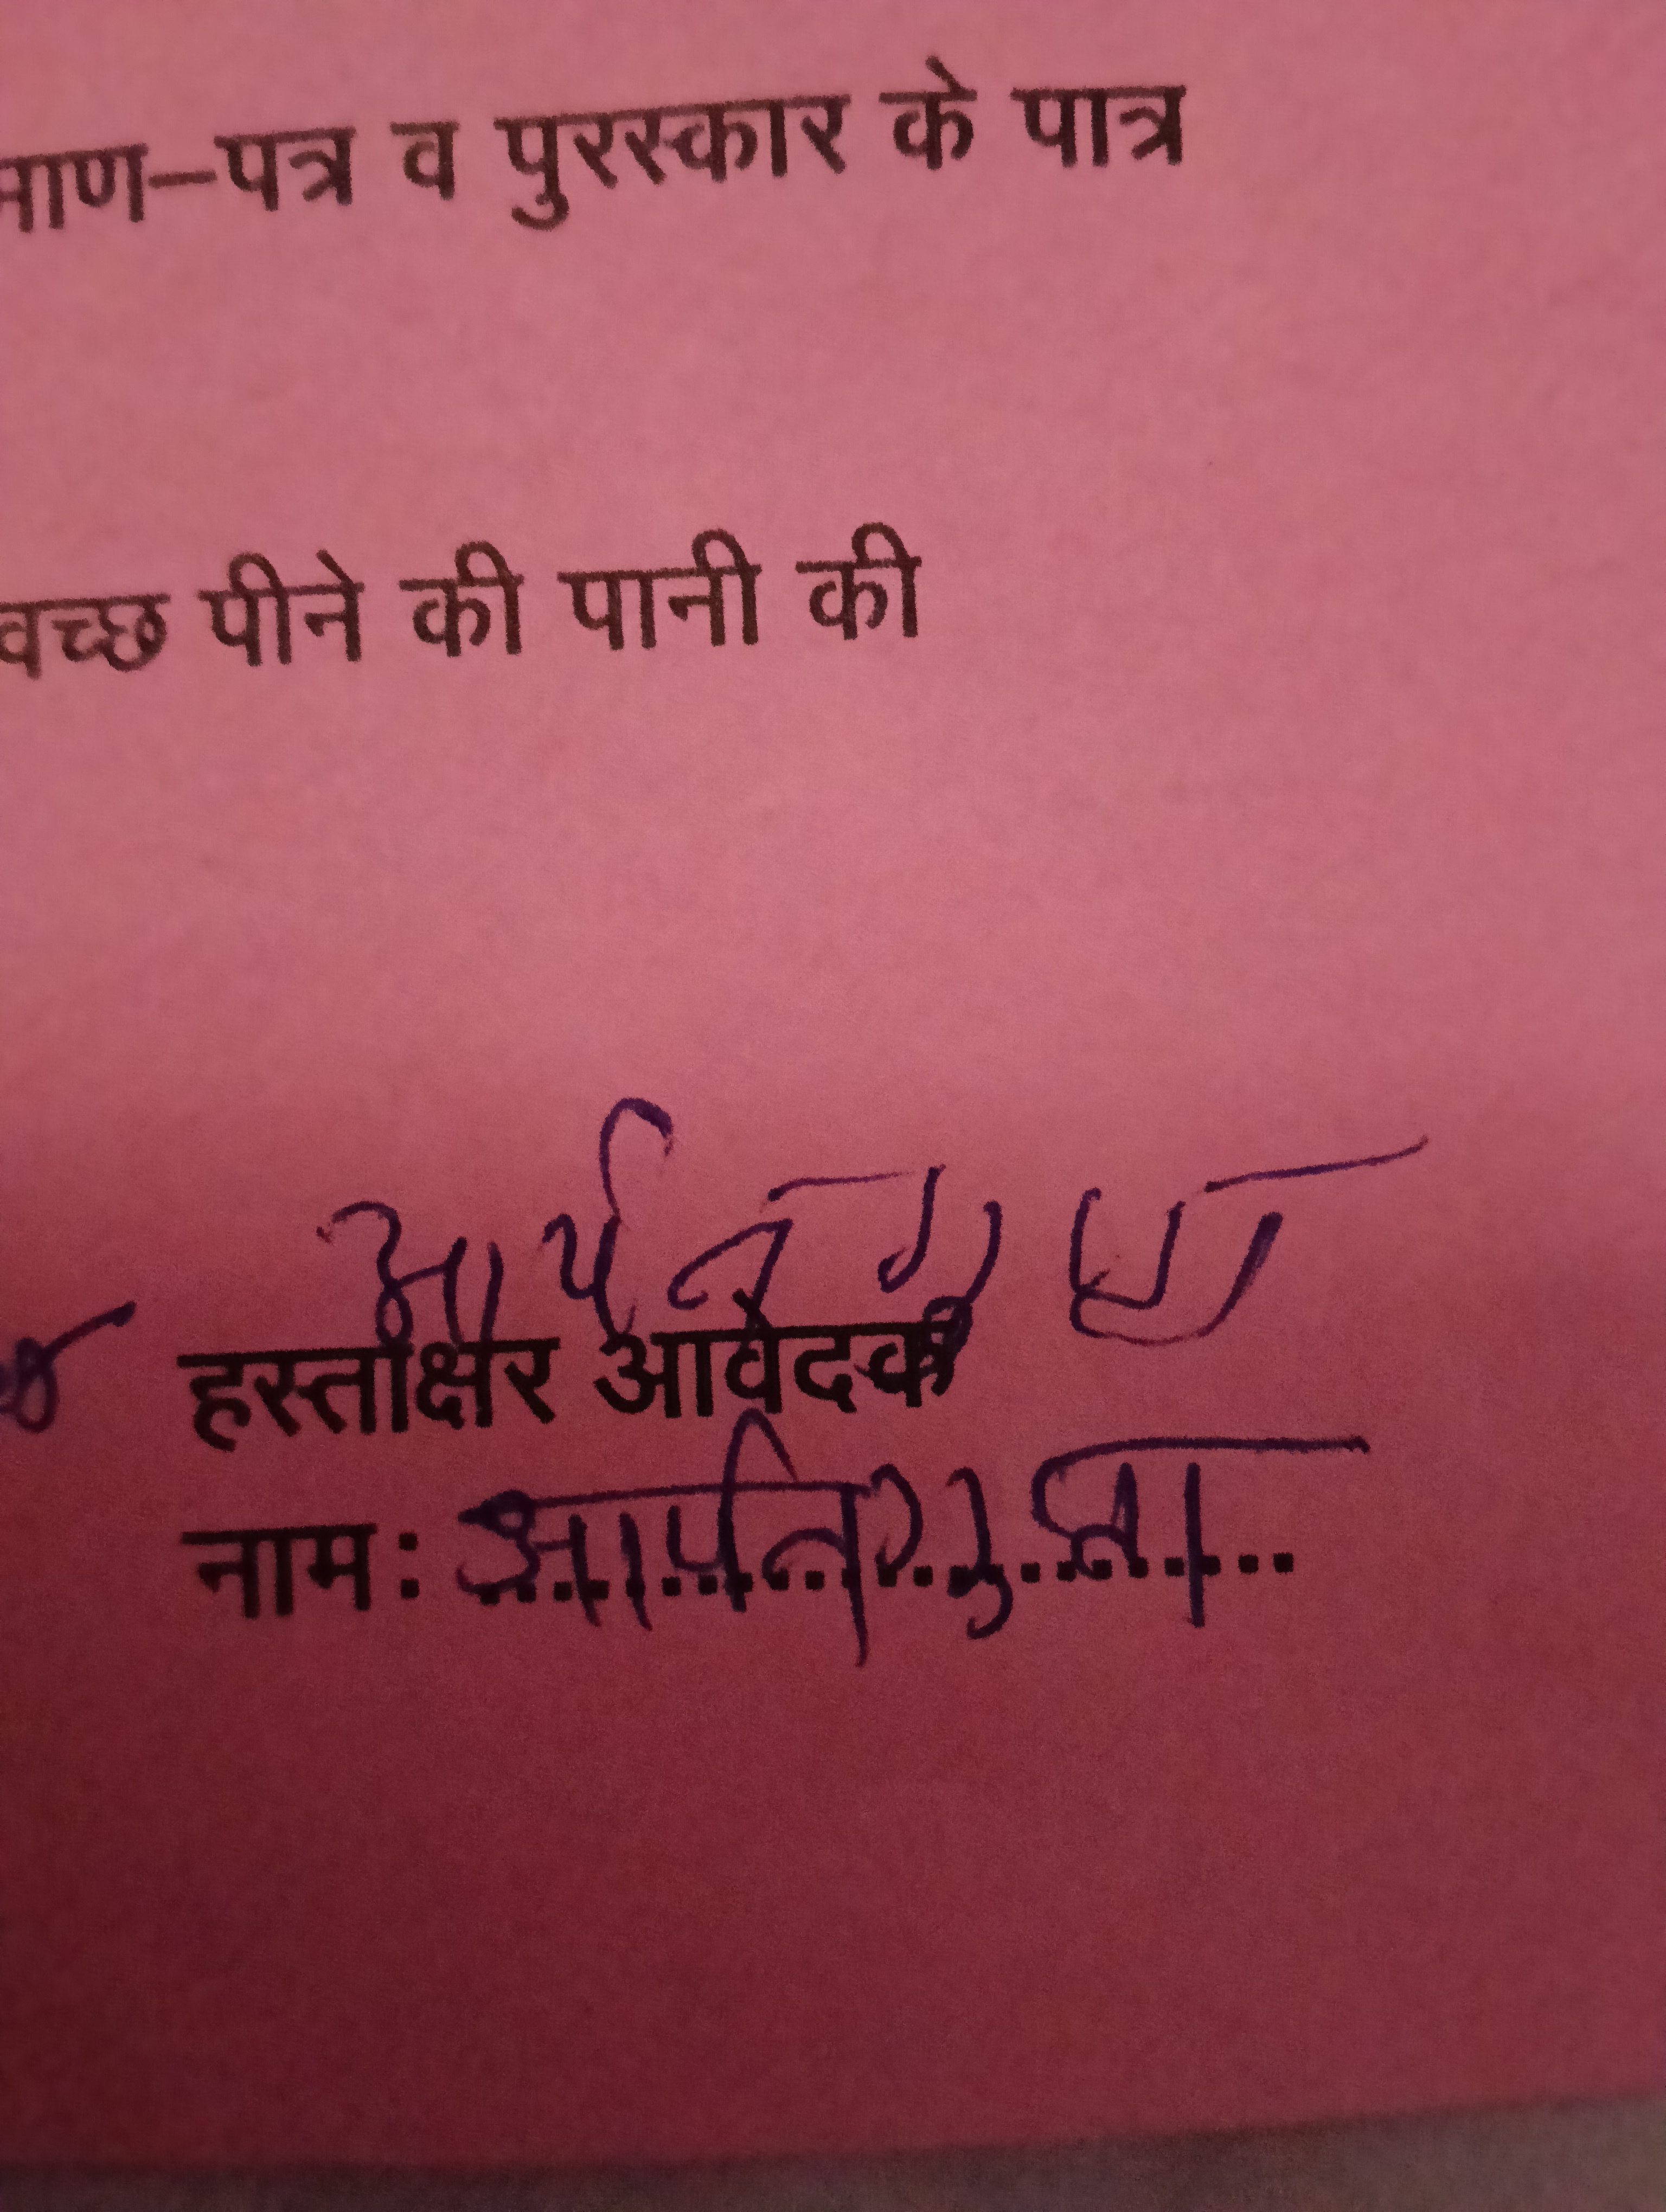 माण–पत्र व पुरस्कार के पात्र
वच्छ पीने की पानी की
हस्ताक्षर आवेदक
नाम: आर्पित गुप्ता